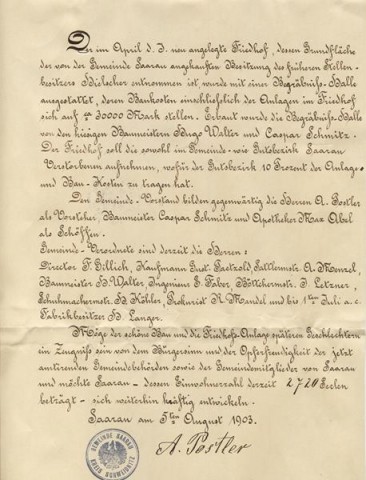 Der im April d. J. neu angelegte Friedhof, dessen Grundfläche
der von der Gemeinde Saarau angekauften Besitzung des früheren Stellen-
besitzers Bielscher entnommen ist, wurde mit einer Begräbniß-Halle
ausgestattet, deren Baukosten einschließlich der Anlagen im Friedhof
sich auf 30000 Mark stellen. Erbaut wurde die Begräbniß-Halle
von den hiesigen Baumeistern Hugo Walter und Caspar Schmitz.
Der Friedhof soll die sowohl im Gemeinde- wie Gutsbezirk Saarau
Verstorbenen aufnehmen, wofür der Gutsbezirk 10 Prozent der Anlage-
und Bau-Kosten zu tragen hat.
Den Gemeinde-Vorstand bilden gegenwärtig die Herren A. Postler
als Vorsteher, Baumeister Caspar Schmitz und Apotheker Max Abel
als Schöffen.
Gemeinde-Verordnete sind derzeit die Herren:
Director F. Gillich, Kaufmann Gust. Paetzold, Sattlermstr. A. Menzel,
Baumeister H. Walter, Ingenieur F. Faber, Böttchermstr. J. Letzner,
Schuhmachermstr. H. Köhler, Prokurist R. Mandel und bis 1ten Juli a. c.
Fabrikbesitzer H. Langer.
Möge der schöne Bau und die Friedhofs-Anlage späteren Geschlechtern
ein Zeugniß sein von dem Bürgersinn und der Opferfreudigkeit der jetzt
amtirenden Gemeindebehörden sowie der Gemeindemitglieder von Saarau
und möchte Saarau – dessen Einwohnerzahl derzeit 2720 Seelen
beträgt – sich weiterhin kräftig entwickeln.
Saarau am 5ten August 1903.
A. Postler
GEMEINDE SAARAU
KREIS SCHWEIDNITZ